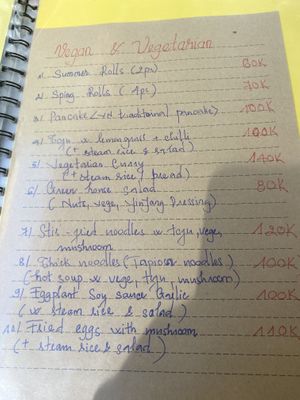 Vegan & Vegetarian
1/ Summer Rolls (2px) 60K
2/ Sping Rolls (4pc) 70K
3/ Pancake (VN traditional pancake) 100K
4/ Tofu w lemongrass & chilli 100K
(+ steam rice & salad)
5/ Vegetarian curry 140K
(+ steam rice / bread)
6/ Green horse salad 80K
(Nuts, vege, dressing)
7/ Stir-fried noodles w tofu, vege, 120K
mushroom
8/ Thick noodles (Tapiocar noodles) 100K
(hot soup w vege, tofu, mushroom)
9/ Eggplant Soy sauce Garlic 100K
(w steam rice & salad)
10/ Fried eggs with mushroom 110K
(+ steam rice & salad)